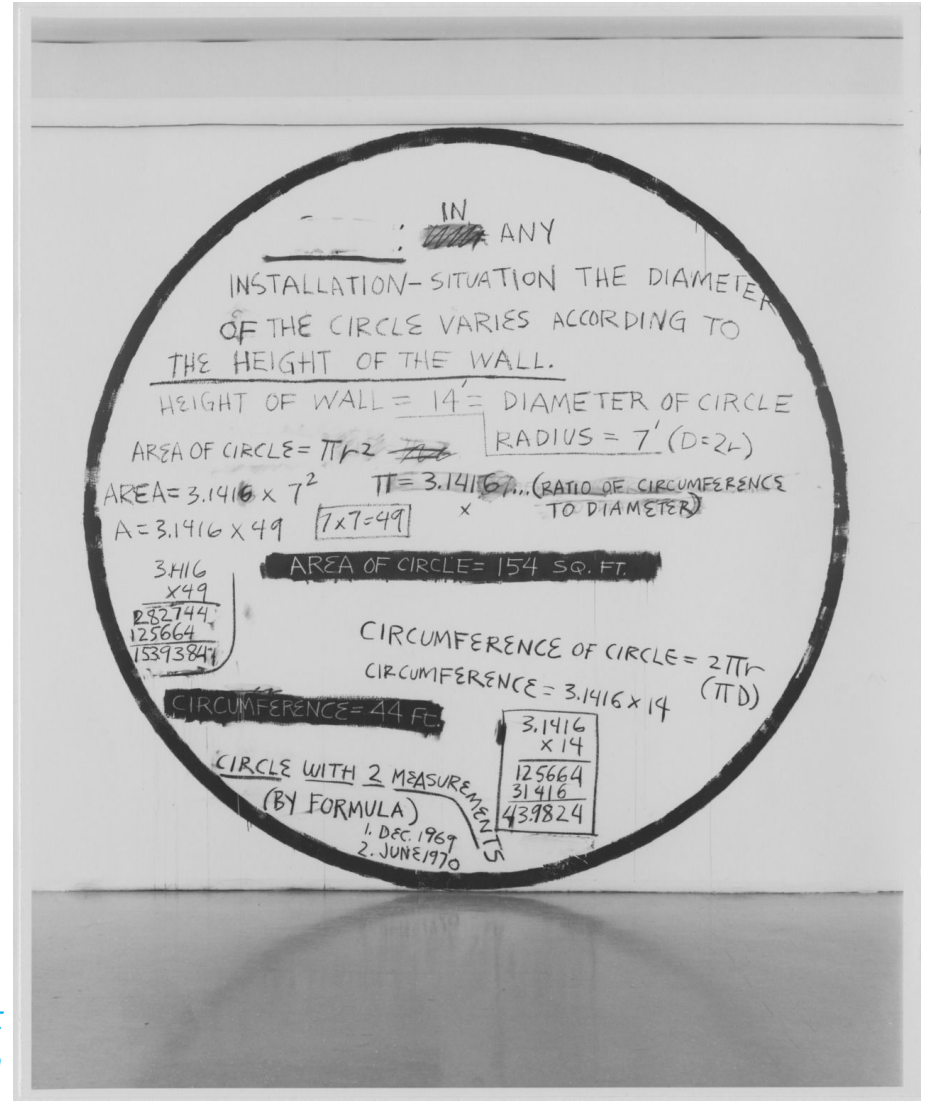 IN
: ANY
INSTALLATION-SITUATION THE DIAMETER
OF THE CIRCLE VARIES ACCORDING TO
THE HEIGHT OF THE WALL.
HEIGHT OF WALL = 14' = DIAMETER OF CIRCLE
RADIUS = 7' (D=2r)
AREA OF CIRCLE = πr2
AREA = 3.1416 x 7²
π = 3.1416... (RATIO OF CIRCUMFERENCE
TO DIAMETER)
x
A = 3.1416 x 49
7x7=49
AREA OF CIRCLE = 154 SQ. FT.
3.1416
x49
282744
125664
1539384
CIRCUMFERENCE OF CIRCLE = 2πr
(πD)
CIRCUMFERENCE = 3.1416 x 14
CIRCUMFERENCE = 44 FT.
3.1416
x 14
125664
31416
43.9824
CIRCLE WITH 2 MEASUREMENTS
(BY FORMULA)
1. DEC. 1969
2. JUNE 1970